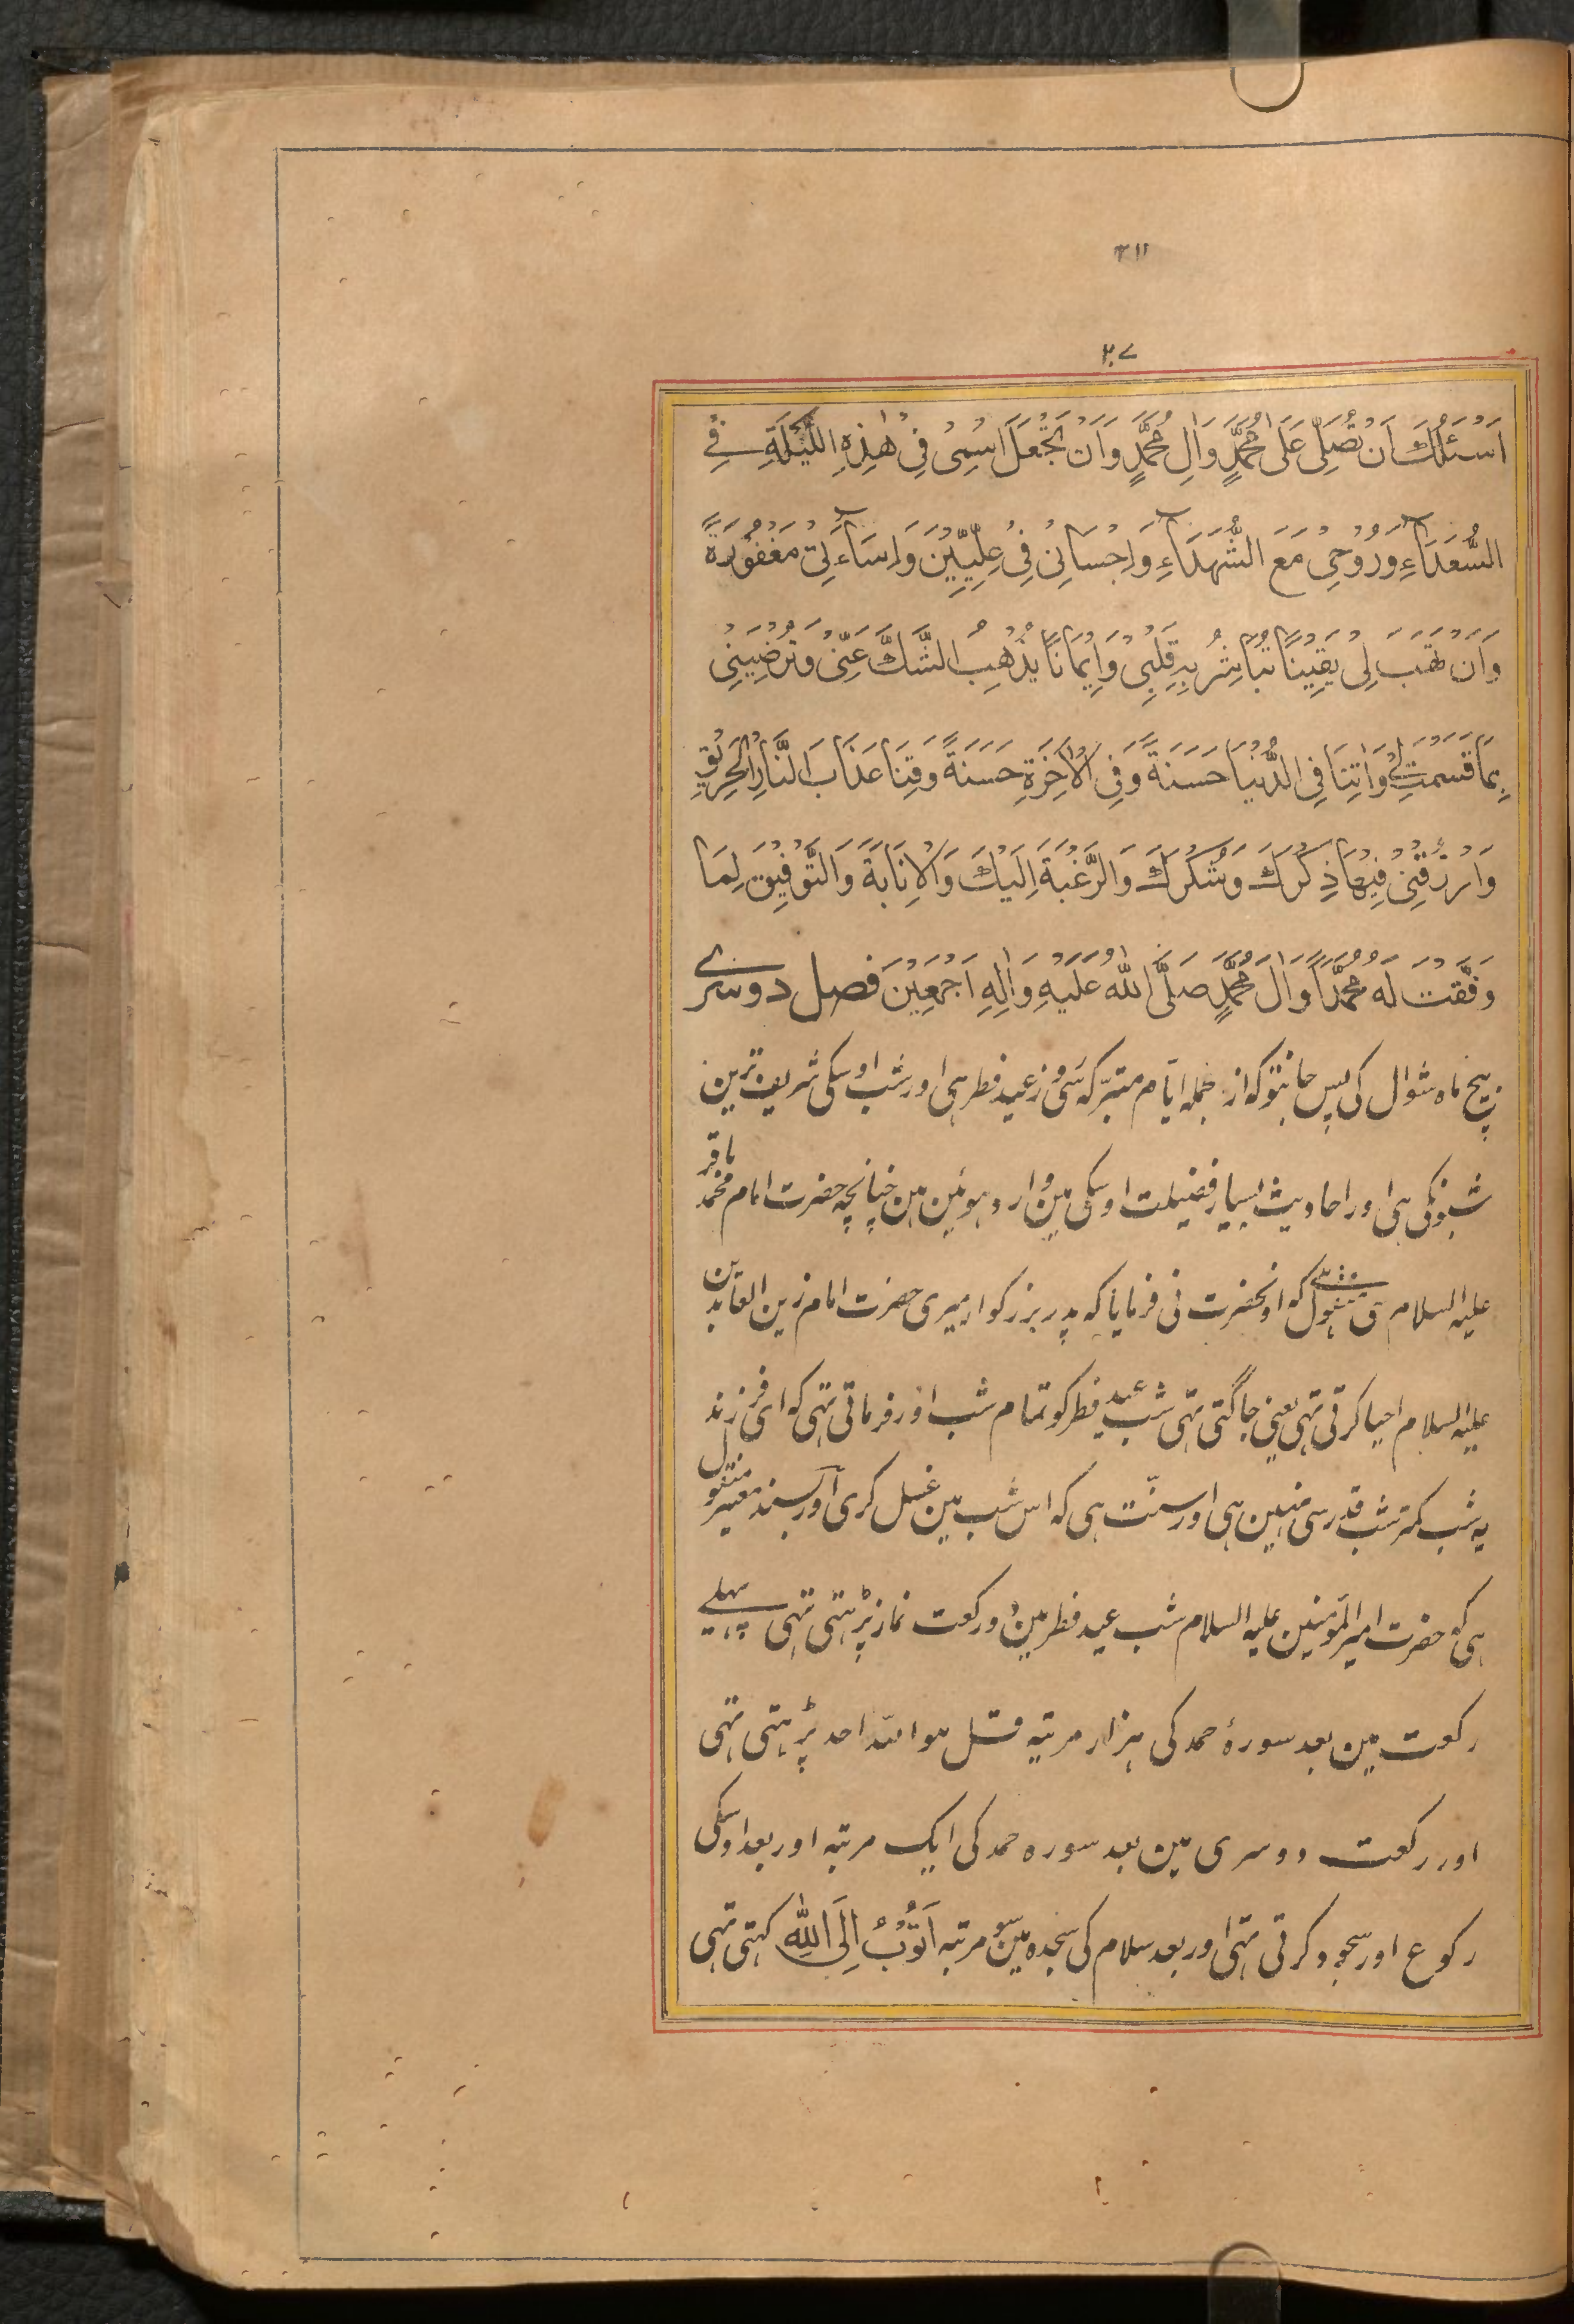 ٣١١
٣٠٧
اَسْئَلُكَ اَنْ تُصَلِّىَ عَلٰى مُحَمَّدٍ وَاٰلِ مُحَمَّدٍ وَاَنْ تَجْعَلَ اسْمِىْ فِىْ هٰذِهِ اللَّيْلَةِ فِے
السُّعَدَآءِ وَرُوْحِىْ مَعَ الشُّهَدَآءِ وَاِحْسَانِىْ فِىْ عِلِّيِّيْنَ وَاِسَآءَتِىْ مَغْفُوْرَةً
وَاَنْ تَهَبَ لِىْ يَقِيْنًا تُبَاشِرُ بِهٖ قَلْبِىْ وَاِيْمَانًا يُذْهِبُ الشَّكَّ عَنِّىْ وَتُرْضِيَنِىْ
بِمَا قَسَمْتَ لِےْ وَاٰتِنَا فِى الدُّنْيَا حَسَنَةً وَفِى الْاٰخِرَةِ حَسَنَةً وَقِنَا عَذَابَ النَّارِ الْحَرِيْقِ
وَارْزُقْنِىْ فِيْهَا ذِكْرَكَ وَشُكْرَكَ وَالرَّغْبَةَ اِلَيْكَ وَالْاِنَابَةَ وَالتَّوْفِيْقَ لِمَا
وَفَّقْتَ لَهُ مُحَمَّدًا وَاٰلَ مُحَمَّدٍ صَلَّى اللّٰهُ عَلَيْهِ وَاٰلِهِ اَجْمَعِيْنَ فصل دوسرے
بیچ ماہ شوال کی پس جانتو کہ از جملہ ایّام متبرّکہ سی روز عید فطر ہی اور شب اوسکی شریف ترین
شبونکی ہی اور احادیث بسیار فضیلت اوسکی مین وارد ہوئین ہین چنانچہ حضرت امام محمّد باقر
علیہ السلام سی منقول ہے کہ اونحضرت نی فرمایا کہ پدر بزرکوار میری حضرت امام زین العابدین
علیہ السلام احیا کرتی تہی یعنی جاگتی تہی شب عید فطر کو تمام شب اور فرماتی تہی کہ ای فرزند
یہ شب کمتر شب قدر سی نہین ہی اور سنّت ہی کہ اس شب مین غسل کری اور بسند معتبر منقول
ہی کہ حضرت امیر المؤمنین علیہ السلام شب عید فطر مین دو رکعت نماز پڑہتی تہی پہلے
رکعت مین بعد سورۂ حمد کی ہزار مرتبہ قل ہو اللّہ احد پڑہتی تہی
اور رکعت دوسری مین بعد سورہ حمد کی ایک مرتبہ اور بعد اوسکی
رکوع اور سجود کرتی تہی اور بعد سلام کی سجدہ مین سو مرتبہ اَتُوْبُ اِلَى اللّٰهِ کہتی تہی